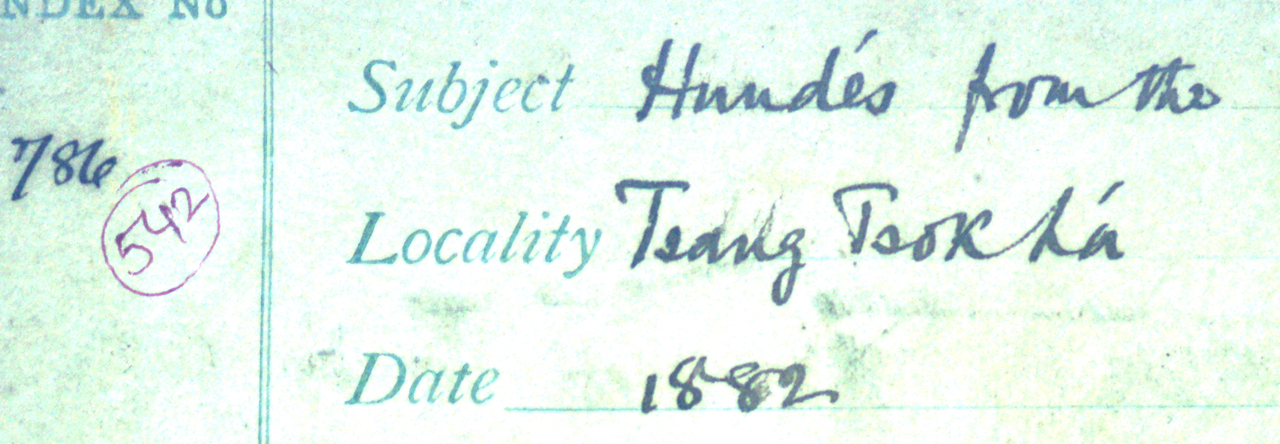 NDEX No
786
542
Subject Hundés from the
Locality Tsang Tsok Lá
Date 1882